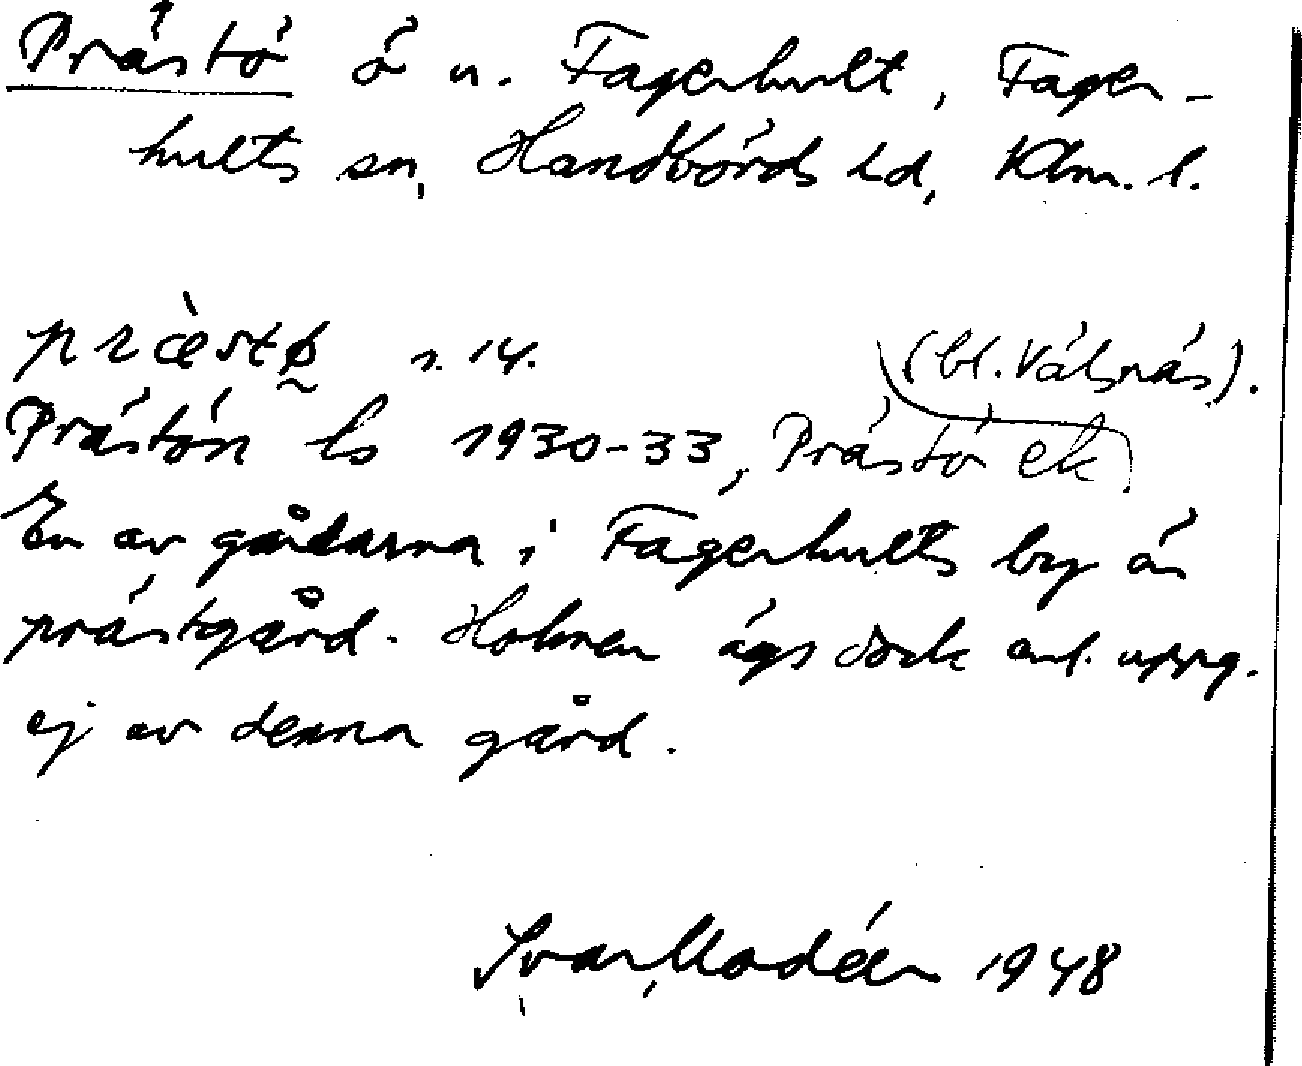 Prästö ö u. Fagerhult, Fager-
hults sn, Handbörds hd, Klm. l.
præstø s. 14. (bl. Välsnäs).
Prästön ls 1930-33, Prästö ek
En av gårdarna i Fagerhults by är
prästgård. Holmen ägs dock enl. uppg.
ej av denna gård.
Ivar Modéer 1948